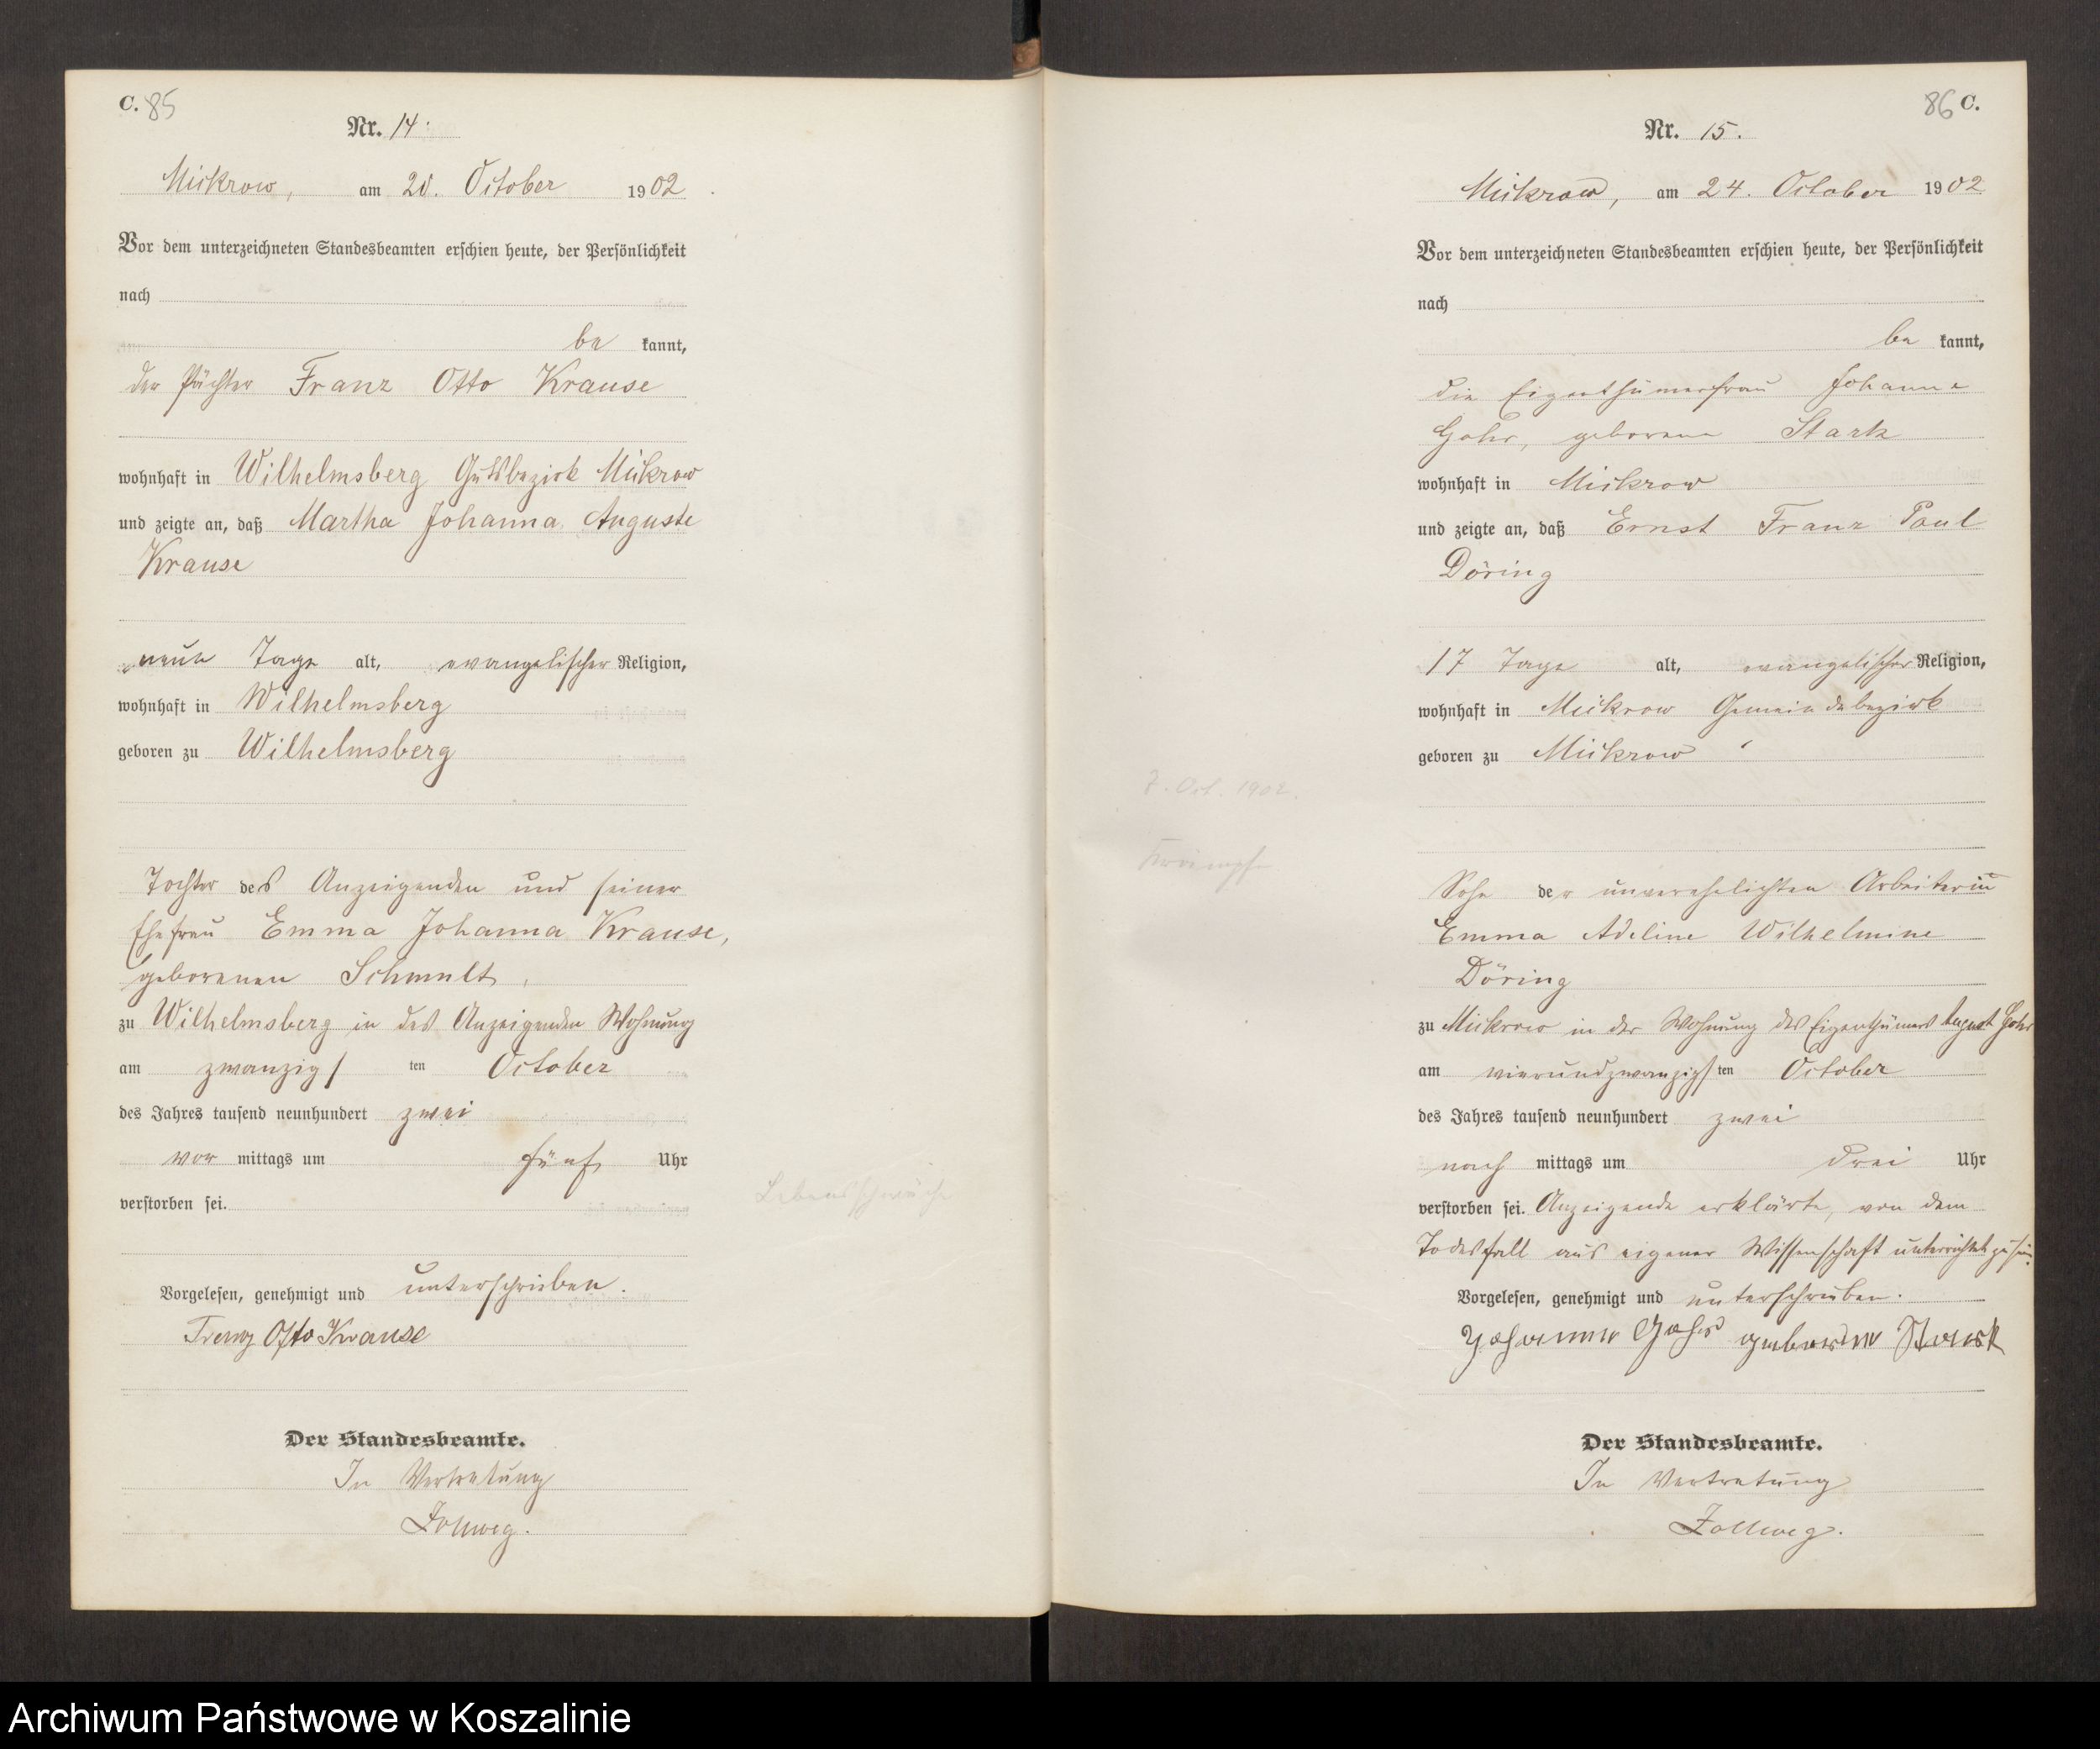 C. 85
Nr. 14.
Mickrow, am 20. October 1902
Vor dem unterzeichneten Standesbeamten erschien heute, der Persönlichkeit
nach
be kannt,
der Pächter Franz Otto Krause
wohnhaft in Wilhelmsberg Gutsbezirk Mickrow
und zeigte an, daß Martha Johanna Auguste
Krause
neun Tage alt, evangelischer Religion,
wohnhaft in Wilhelmsberg
geboren zu Wilhelmsberg
Tochter des Anzeigenden und seiner
Ehefrau Emma Johanna Krause,
geborenen
zu Wilhelmsberg in des Anzeigenden Wohnung
am zwanzigsten October
des Jahres tausend neunhundert zwei
vor mittags um fünf Uhr
verstorben sei.
Lebensschwäche
Vorgelesen, genehmigt und unterschrieben.
Franz Otto Krause
Der Standesbeamte.
In Vertretung
Zollweg.
86 C.
Nr. 15.
Mickrow, am 24. October 1902
Vor dem unterzeichneten Standesbeamten erschien heute, der Persönlichkeit
nach
be kannt,
die Eigenthümerfrau Johanne
Gohr, geborene Stark
wohnhaft in Mickrow
und zeigte an, daß Ernst Franz Paul
Döring
17 Tage alt, evangelischer Religion,
wohnhaft in Mickrow Gemeindebezirk
geboren zu Mickrow
7. Oct. 1902.
Krämpfe
Sohn der unverehelichten Arbeiterin
Emma Adeline Wilhelmine
Döring
zu Mickrow in der Wohnung des Eigenthümers August Gohr
am vierundzwanzigsten October
des Jahres tausend neunhundert zwei
nach mittags um drei Uhr
verstorben sei. Anzeigende erklärte, von dem
Todesfall aus eigener Wissenschaft unterrichtet zu sein.
Vorgelesen, genehmigt und unterschrieben.
Johanne Gohr geborene Stark
Der Standesbeamte.
In Vertretung
Zollweg.
Archiwum Państwowe w Koszalinie